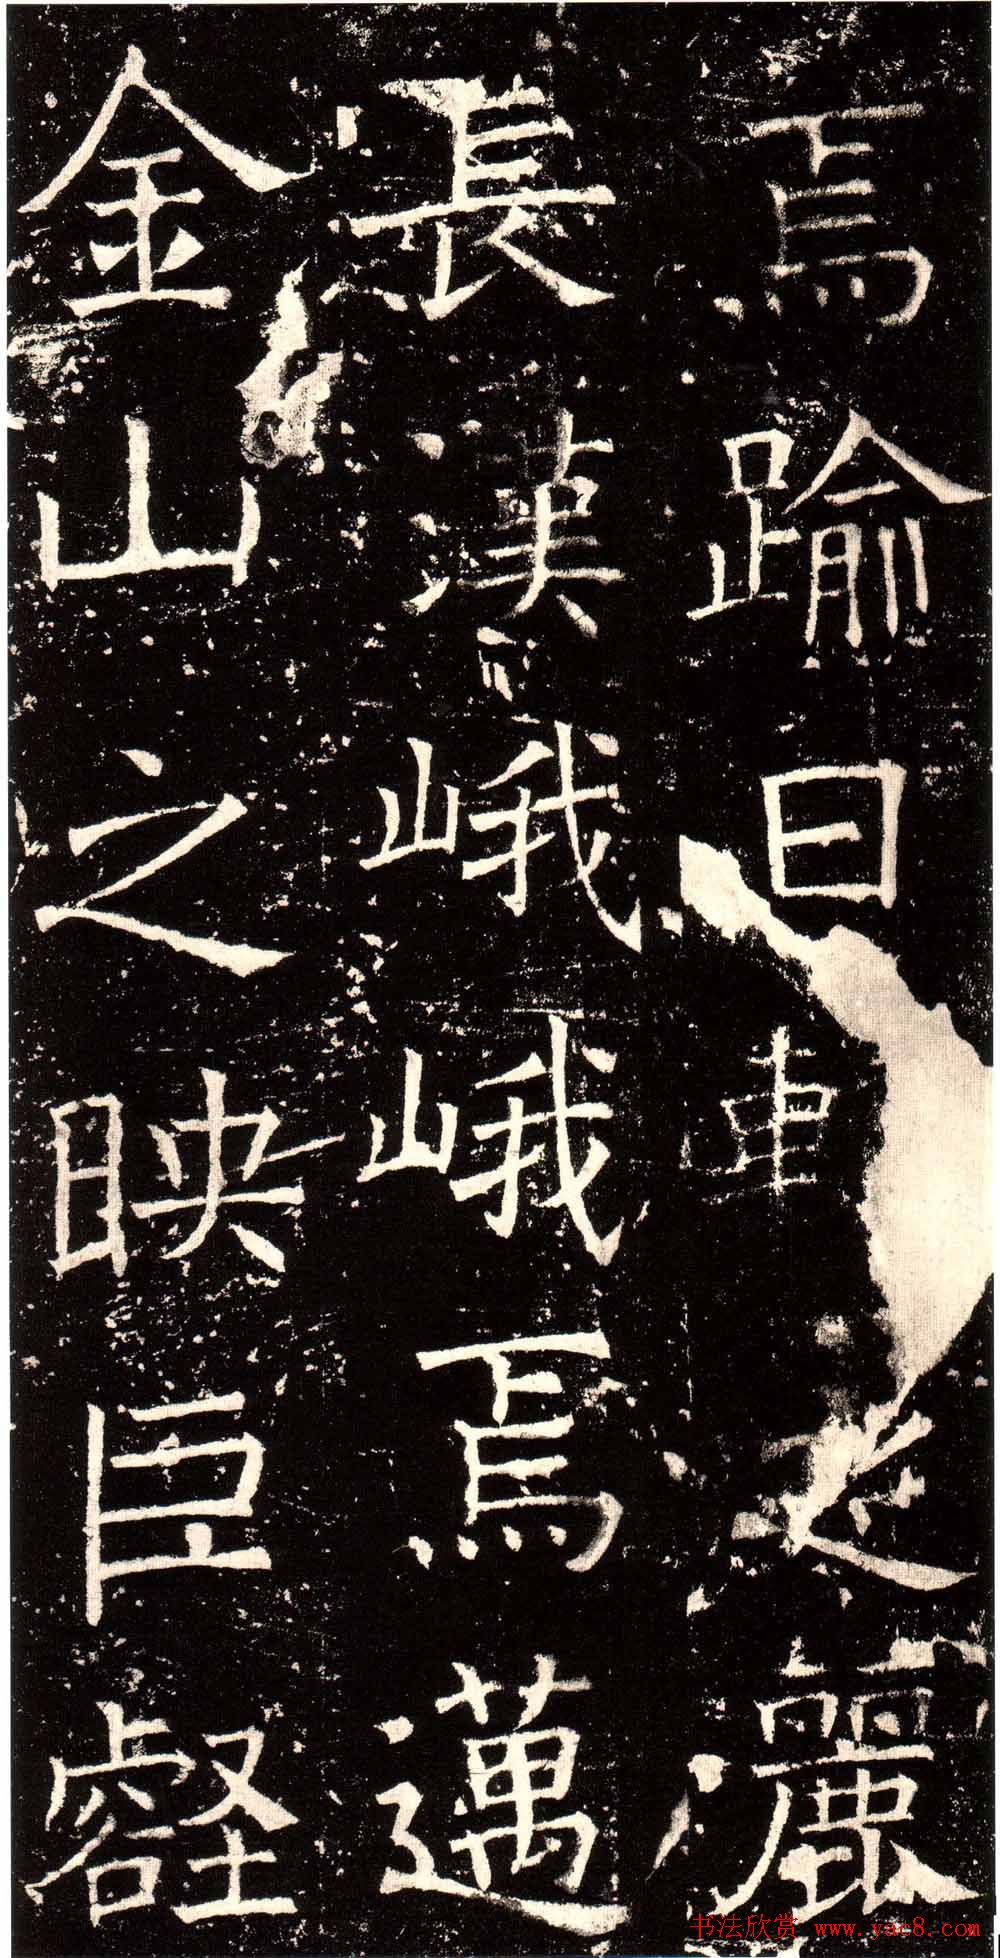 焉踰日車之麗
長漢峨峨焉邁
金山之映臣壑
书法欣赏 www.yac8.com